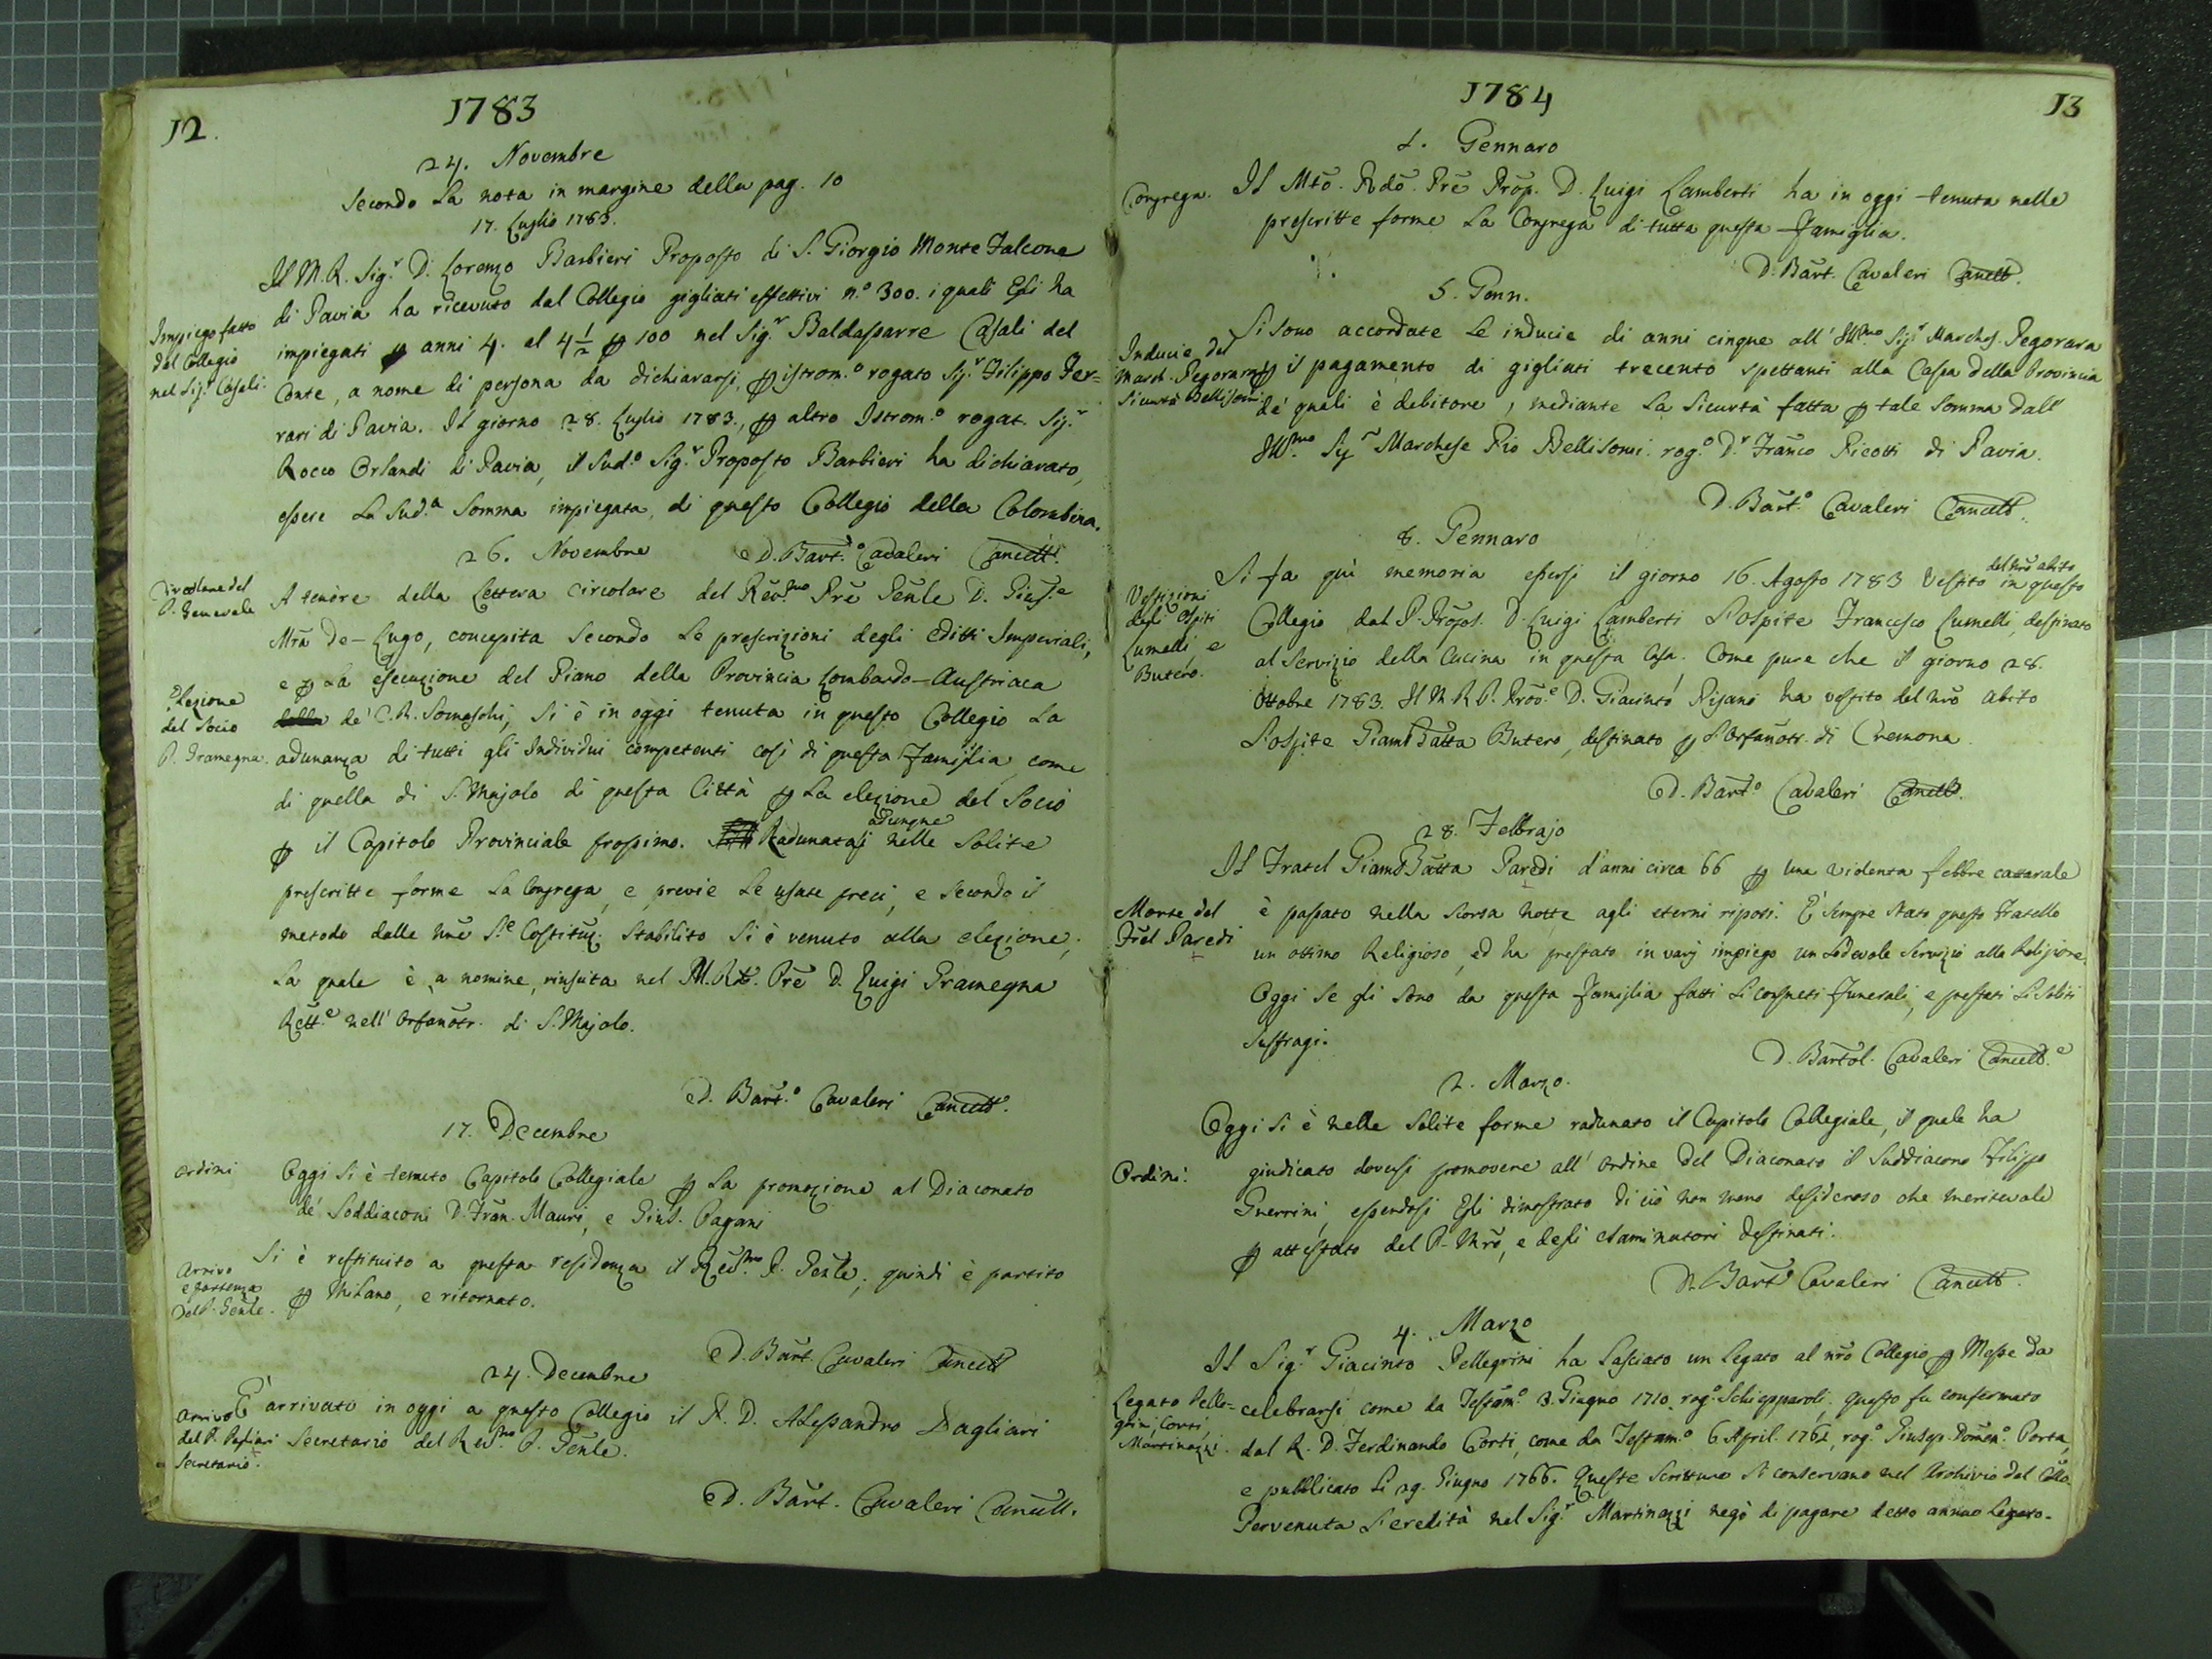 12.
1783
24. Novembre
Secondo la nota in margine della pag. 10
17. Luglio 1783.
Impiego fatto
dal Collegio
nel Sig.r Casali.
Il M. R. Sig.r D. Lorenzo Barbieri Proposto di S. Giorgio Monte Falcone
di Pavia ha ricevuto dal Collegio gigliati effettivi n.o 300. i quali Esi ha
impiegati ꝑ anni 4. al 4 1/2 ꝑ 100 nel Sig.r Baldassarre Casali del
Conte, a nome di persona da dichiararsi, ꝑ istrom.o rogato Sig.r Filippo Fer=
rari di Pavia. Il giorno 28. Luglio 1783., ꝑ altro Istrom.o rogat. Sig.r
Rocco Orlandi di Pavia, il Sud.o Sig.r Proposto Barbieri ha dichiarato,
essere la Sud.a Somma impiegata, di questo Collegio della Colombina.
D. Bart.o Cavaleri Cancell.
26. Novembre
Circolare del
P. Generale
Elezione
del Socio
P. Gramegna.
A tenore della Lettera Circolare del Rev.mo Pre Genle D. Gius.e
Mra De-Lugo, concepita secondo le prescrizioni degli editti Imperiali,
e ꝑ la esecuzione del Piano della Provincia Lombardo-Austriaca
della de' C. R. Somaschi, si è in oggi tenuta in questo Collegio la
adunanza di tutti gli Individui competenti così di questa Famiglia come
di quella di S. Majolo di questa Città ꝑ la elezione del Socio
ꝑ il Capitolo Provinciale prossimo. Radunatasi adunque nelle solite
prescritte forme la Congrega, e previe le usate preci, e secondo il
metodo dalle nre S.e Costituz. stabilito si è venuto alla elezione,
la quale è, a nomine, riuscita nel M. R. Pre D. Luigi Gramegna
Rett.e nell' Orfanotr. di S. Majolo.
D. Bart.o Cavaleri Cancell.
17. Decembre
Ordini
Oggi si è tenuto Capitolo Collegiale ꝑ la promozione al Diaconato
de' Soddiaconi D. Fran. Mauri, e Gius. Pagani
Arrivo
e partenza
del P. Genle.
Si è restituito a questa residenza il Rev.mo P. Genle, quindi è partito
ꝑ Milano, e ritornato.
D. Bart. Cavaleri Cancell
24. Decembre
Arrivo
del P. Pagliari
Secretario.
E' arrivato in oggi a questo Collegio il P. D. Alessandro Pagliari
Secretario del Rev.mo P. Genle.
D. Bart. Cavaleri Cancell.
1784
13
1. Gennaro
Congrega.
Il Mto. Rdo. Pre Prop. D. Luigi Lamberti ha in oggi tenuta nelle
prescritte forme la Congrega di tutta questa Famiglia.
D. Bart. Cavaleri Cancell.
5. Genn.
Inducie del
March. Pegorara
Sicurtà Bellisomi.
Si sono accordate le inducie di anni cinque all' Ill.mo Sig.r Marches. Pegorara
ꝑ il pagamento di gigliati trecento spettanti alla Cassa della Provincia
de' quali è debitore, mediante la Sicurtà fatta ꝑ tale somma dall'
Ill.mo Sig.r Marchese Pio Bellisomi. rog.o D.r Franco Picotti di Pavia.
D. Bart.o Cavaleri Cancell.
8. Gennaro
Vestizioni
degli Ospiti
Lumelli, e
Butero.
Si fa quì memoria essersi il giorno 16. Agosto 1783 vestito del nro abito in questo
Collegio dal P. Propos. D. Luigi Lamberti l'ospite Francesco Lumelli, destinato
al Servizio della Cucina in questa Casa. Come pure che il giorno 28.
Ottobre 1783. Il M. R. P. Prov.e D. Giacinto Pisani ha vestito del nro abito
l'ospite Giam Batta Butero, destinato ꝑ l'Orfanotr. di Cremona
D. Bart.o Cavaleri Cancell.
28. Febbrajo
Morte del
Frel Paredi
Il Fratel Giam Batta Paredi d'anni circa 66 ꝑ una violenta febbre cattarale
è passato nella scorsa notte agli eterni riposi. E' sempre stato questo Fratello
un ottimo Religioso, ed ha prestato in varj impiego un lodevole Servizio alla Religione.
Oggi se gli sono da questa Famiglia fatti li consueti Funerali, e prestati li soliti
suffragi.
D. Bartol. Cavaleri Cancell.e
2. Marzo.
Ordini.
Oggi si è nelle solite forme radunato il Capitolo Collegiale, il quale ha
giudicato doversi promovere all' Ordine del Diaconato il Suddiacono Filippo
Guerrini, essendosi Egli dimostrato di ciò non meno desideroso che meritevole
ꝑ attestato del P. Mro, e degli esaminatori destinati.
D. Bart Cavaleri Cancell.
4. Marzo
Legato Pelle=
grini, Corti,
Martinazzi.
Il Sig.r Giacinto Pellegrini ha lasciato un legato al nro Collegio ꝑ Messe da
celebrarsi come da Testam.o 3. Giugno 1710. rog.o Schiepparoli. Questo fu confermato
dal R. D. Ferdinando Corti, come da Testam.o 6 April. 1762, rog.o Giusep. Domen.o Porta,
e pubblicato li 29. Giugno 1766. Queste scritture si conservano nel Archivio del Collo.
Pervenuta l'eredità nel Sig.r Martinazzi negò di pagare detto annuo Legato.